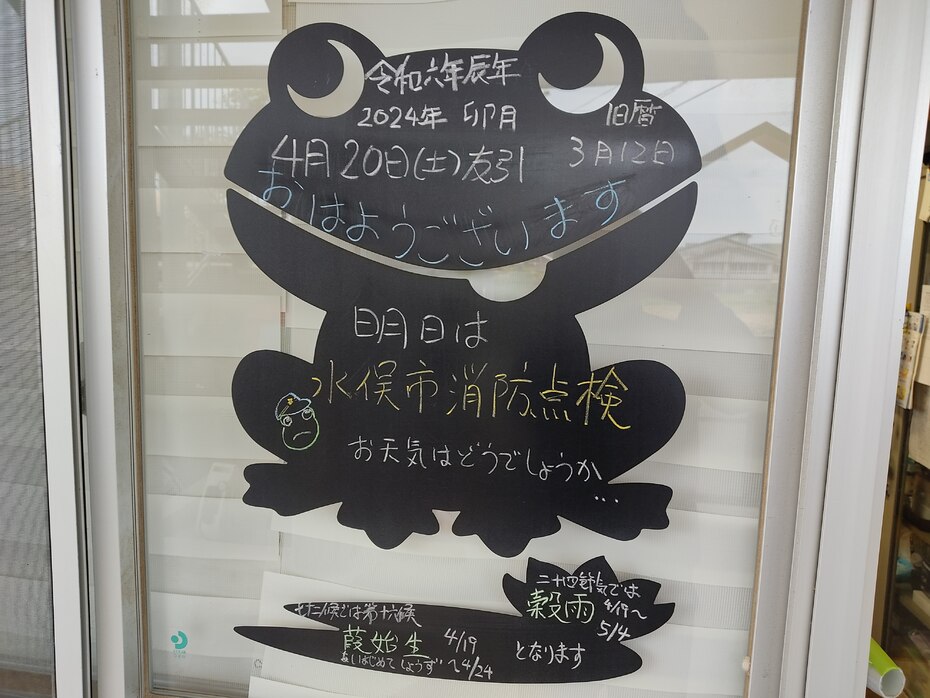 令和六年辰年
2024年 卯月 旧暦
4月20日(土)友引 3月12日
おはようございます
明日は
水俣市消防点検
お天気はどうでしょうか...
二十四節気では
穀雨 4/19～
5/4
となります
七十二候では第十六候
葭始生 4/19
よしはじめてしょうず ～4/24